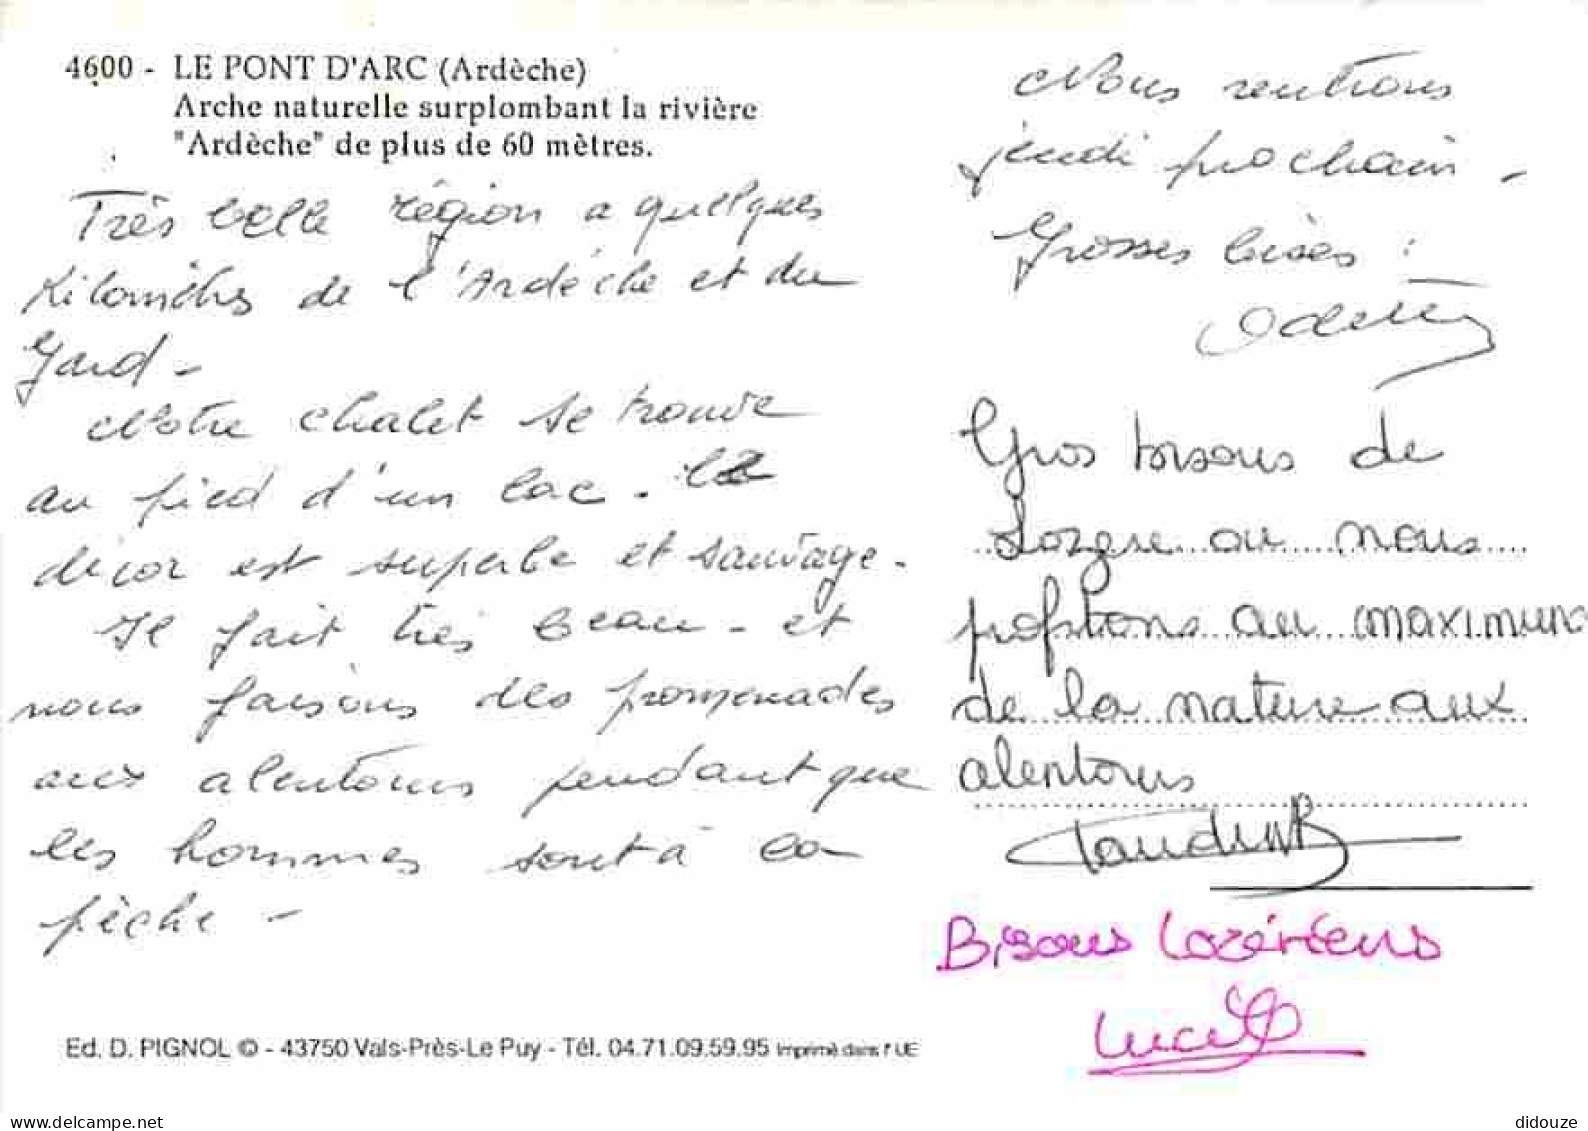 4600 - LE PONT D'ARC (Ardèche)
Arche naturelle surplombant la rivière
"Ardèche" de plus de 60 mètres.
Très belle région a quelques
kilomètres de l'Ardèche et du
Gard -
Notre chalet se trouve
au pied d'un lac. le
décor est superbe et sauvage.
Il fait très beau - et
nous faisons des promenades
aux alentours pendant que
les hommes sont à la
pêche -
Nous rentrons
jeudi prochain -
Grosses bises :
Odette
Gros bisous de
ou nous
profitons au maximum
de la nature aux
alentours
Bisous Lozériens
Lucile
Ed. D. PIGNOL © - 43750 Vals-Près-Le Puy - Tél. 04.71.09.59.95 Imprimé dans l'UE
delcampe.net
didouze